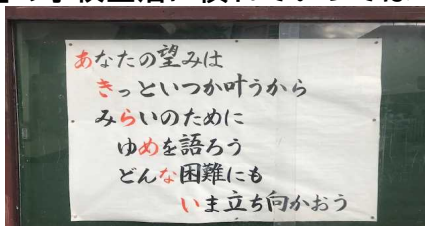 あなたの望みは
きっといつか叶うから
みらいのために
ゆめを語ろう
どんな困難にも
いま立ち向かおう